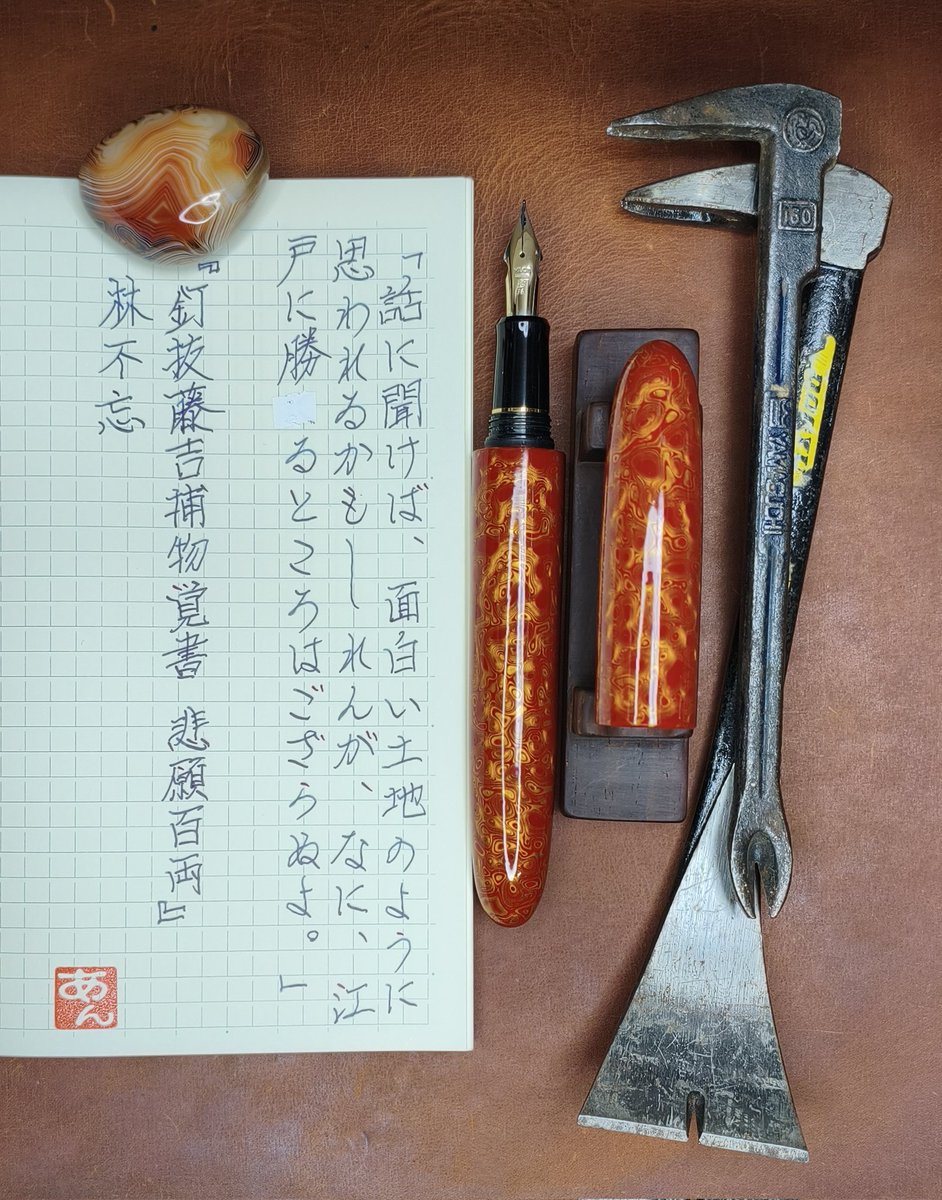 「話に聞けば、面白い土地のように
思われるかもしれんが、なに、江
戸に勝るところはござらぬよ。」
『釘抜藤吉捕物覚書 悲願百両』
林不忘
あん
160
YAMAGUCHI